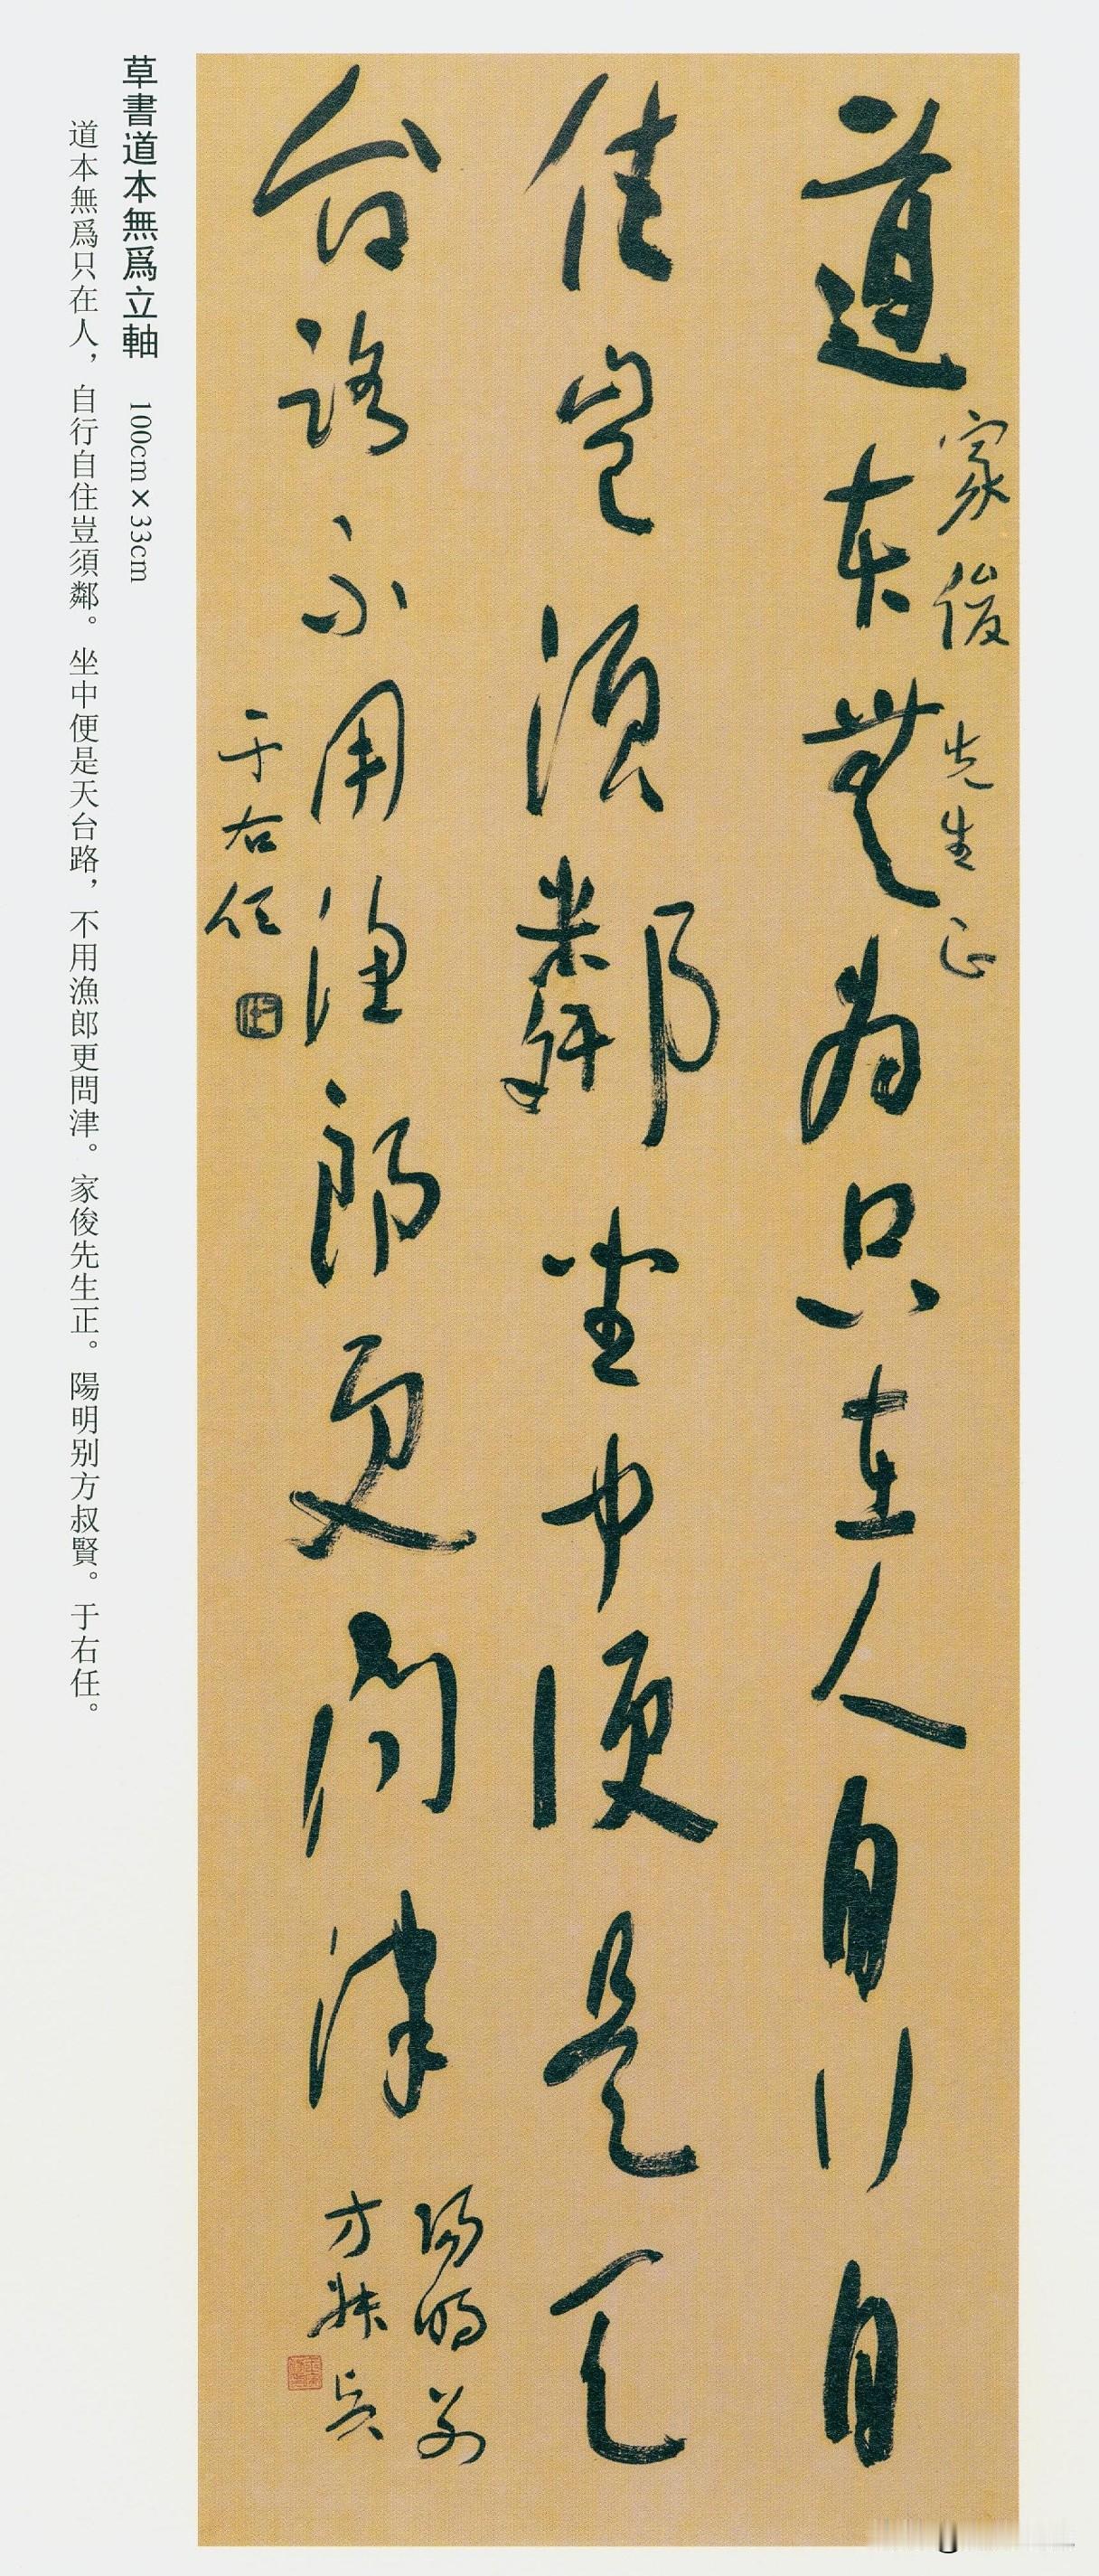 道本無为只在人自行自
住豈須鄰坐中便是天
台路不用漁郎更问津
家俊先生正
陽明别
方叔賢
于右任
草書道本無爲立軸 100cm×33cm
道本無爲只在人，自行自住豈須鄰。坐中便是天台路，不用漁郎更問津。家俊先生正。陽明别方叔賢。于右任。